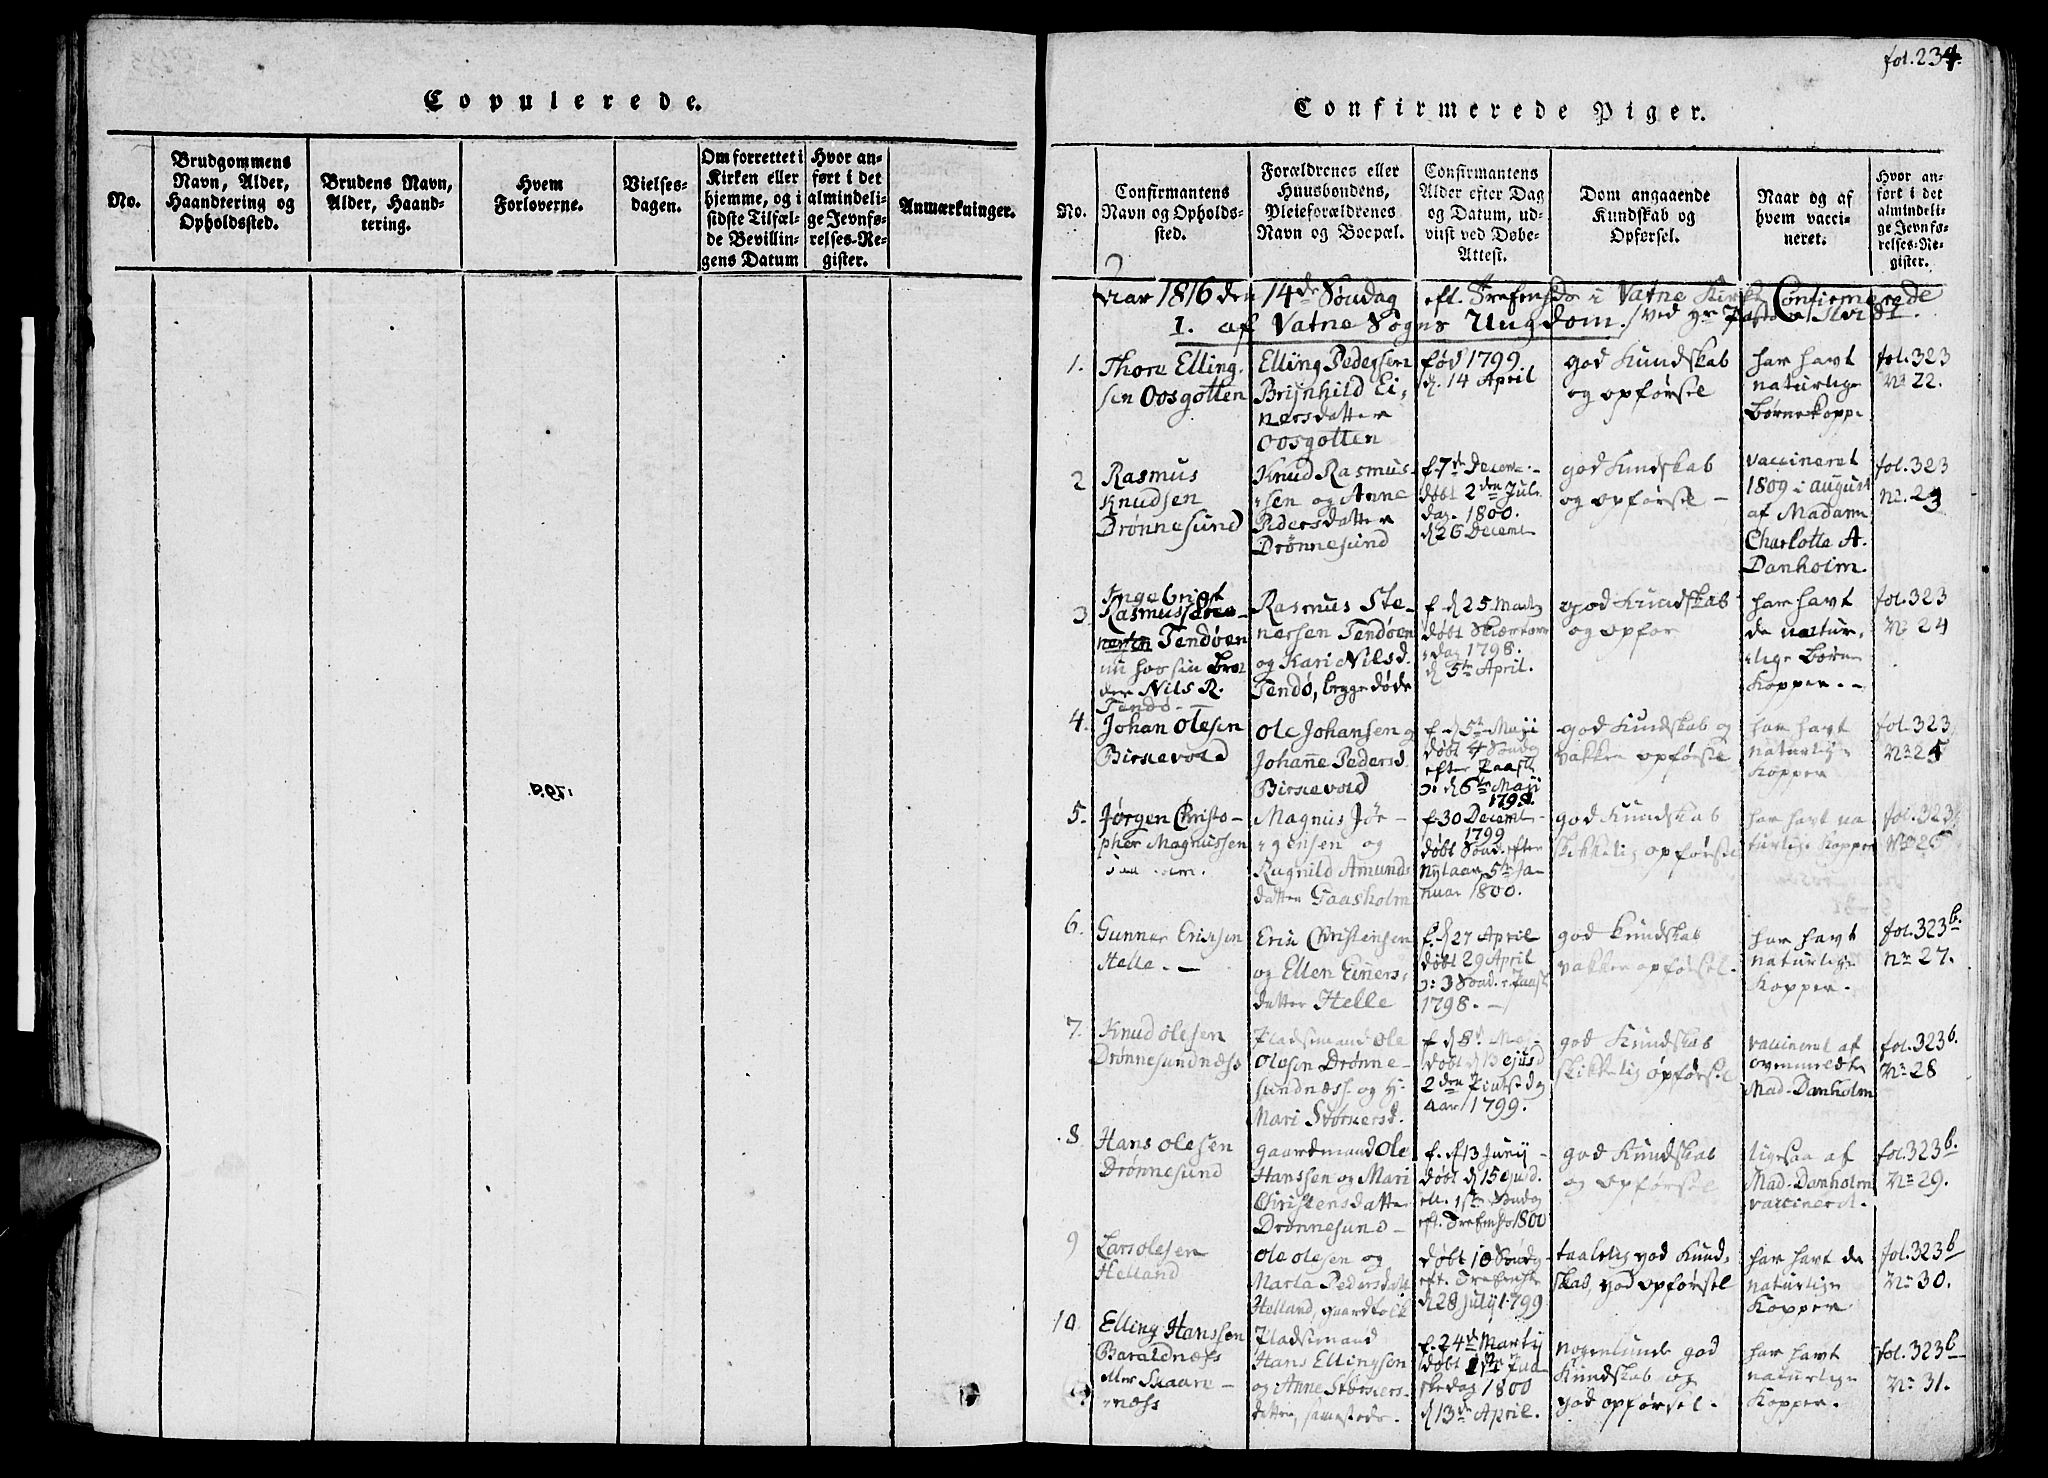 Copulerede.
No.
Brudgommens
Navn, Alder,
Haandtering og
Opholdssted.
Brudens Navn,
Alder, Haand-
tering.
Hvem
Forloverne.
Vielses-
dagen.
Om forrettet i
Kirken eller
hjemme, og i
sidste Tilfæl-
de Bevillin-
gens Datum
Hvor an-
ført i det
almindeli-
ge Jevnfø-
relses-Re-
gister.
Anmærkninger.
fol. 234.
Confirmerede Piger.
No.
Confirmantens
Navn og Opholds-
sted.
Forældrenes eller
Huusbondens,
Pleieforældrenes
Navn og Boepæl.
Confirmantens
Alder efter Dag
og Datum, ud-
viist ved Døbe-
Attest.
Dom angaaende
Kundskab og
Opførsel.
Naar og af
hvem vacci-
neret.
Hvor an-
ført i det
almindeli-
ge Jevnfø-
relses-Re-
gister.
Aar 1816 den 14de Søndag eft. Trefensde i Vatne Kirke Confirmerede
1. af Vatne Sogns Ungdom. /ved Hr
1.
Thore Elling-
sen Oosgotten
Elling Pedersen
Brijnhild Ei-
nersdatter
Oosgotten
fød 1799
d. 14 April
god Kundskab
og opførsel
har havt
naturlige
Børnekopper
fol. 323
No 22.
2
Rasmus
Knudsen
Drønnesund
Knud Rasmus-
sen og Anne
Pedersdatter
Drønnesund
f. 7de Decem
døbt 2den Jule
dag. 1800.
d 26 Decemb
god Kundskab
og opførsel –
vaccineret
1809 i august
af Madam
Charlotte A.
Danholm.
fol. 323
No. 23
3
Ingebrigt
Rasmussen
Tendøen
nu hos sin Bro
der Nils R.
Tendø –
Rasmus Ste-
nersen Tendøen
og Kari Nilsd.
Tendø, begge døde
f. d 25 Marty
døbt Skiertors
dag 1798.
d 5te April.
god Kundskab
og opfør
har havt
de natur-
lige Børne
Kopper. –
fol. 323
No 24
4.
Johan Olesen
Birkevold
Ole Johansen og
Johanne Pedersd.
Birkevold
f. d 5te Maji
døbt 4 Søndag
efter Paaske
d 6te Maji
1798.
god Kundskab og
vakker opførsel
har havt
naturlige
Kopper
fol. 323
No 25
5.
Jørgen Christo-
pher Magnussen
Magnus Jør-
gensen og
Ragnild Amunds
datter Gaasholm
f. 30 Decemb
1799
døbt Sønd. efter
Nytaar 5te Ja
nuar 1800.
god Kundskab
skikkelig opførsel
har havt na
turlige Kopper
fol. 323b
No 26
6.
Gunner Ericksen
Helle. –
Erik Christensen
og Ellen Einers-
datter Helle
f. d 27 April
døbt 29 April
3 Sønd. e. Paask
1798. –
god kundskab
vakker opførsel.
har havt
naturlige
Kopper.
fol. 323b.
No 27.
7.
Knud Olesen
Drønnesundnæss
Pladsemand Ole
Olesen Drønne-
sundnæss og H.
Mari Størkersd.
f. d 8d. Maj
døbt d 13 ejusd
2den Pintsedag
aar 1799.
god Kundskab
skikkelig opførsel
vaccineret af
ovenmeldte
Mad. Danholm
fol. 323b.
No 28
8.
Hans Olesen
Drønnesund
gaardmand Ole
Hanssen og Mari
Christensdatter
Drønnesund –
f. d 13 Junij –
døbt d 15 ejusd.
ell. 1ste Søndag
eft. Trefensd 1800
god Kundskab
og opførsel
ligesaa af
Mad. Danholm
vaccineret.
fol. 323b.
No 29.
9
Lars Olesen
Helland
Ole Olesen og
Marta Pedersdatt
Helland, gaardfolk
døbt 10 Søndg
eft. Trefensde
d 28 Julij 1799
taalelig god Kund-
skab, god opførsel
har havt de
naturlige
Kopper
fol. 323b
No 30.
10.
Elling Hanssen
Baraldnæss
eller Skaare-
næss
Pladsemand
Hans Ellingsen
og Anne Størkers-
datter, samesteds.
f. 24de Martij
døbt 1ste Paa
skedag 1800
d 13de April.
nogenlunde god
Kundskab og
god opførsel.
har havt
naturlige
Kopper.
fol. 323b
No 31.